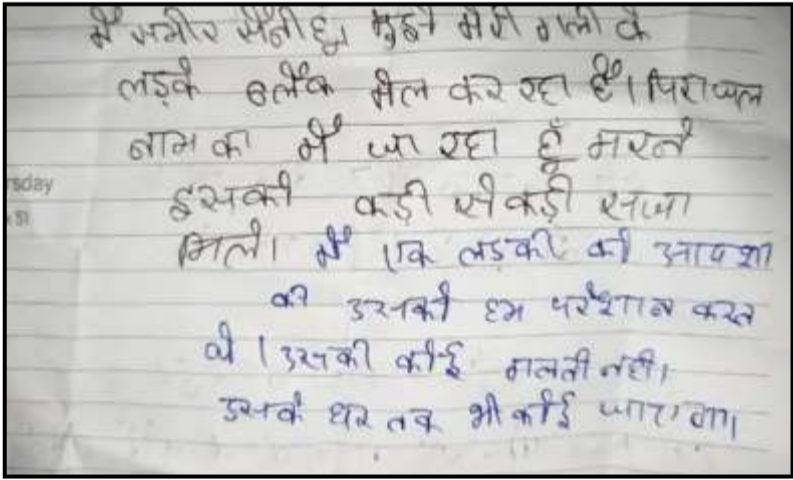 मैं समीर सैनी हूँ, मुझे मेरी गली के
लड़के ब्लैक मेल कर रहा है।
नाम का मैं जा रहा हूँ मरने
rsday
इसको कड़ी से कड़ी सजा
मिले। मैं एक लड़की को
को उसको हम परेशान करत
थे। उसकी कोई गलती नही।
उसके घर तक भी कोई